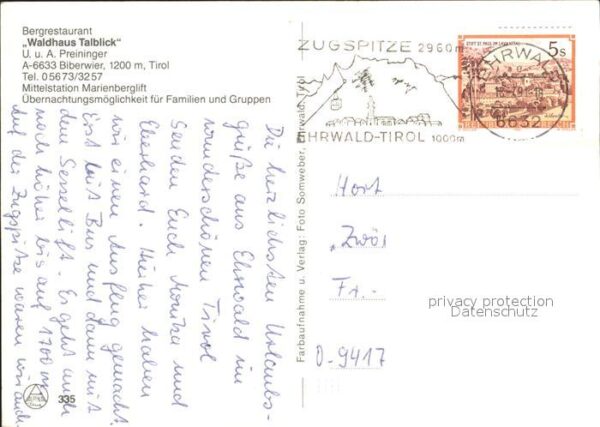 Bergrestaurant
„Waldhaus Talblick"
U. u. A. Preininger
A-6633 Biberwier, 1200 m, Tirol
Tel. 05673/3257
Mittelstation Marienberglift
Übernachtungsmöglichkeit für Familien und Gruppen
ZUGSPITZE 2960m
EHRWALD-TIROL 1000m
EHRWALD
6632
STIFT ST. PAUL IM LAVANTTAL
5s
REPUBLIK ÖSTERREICH
Die herzlichsten Urlaubs-
grüße aus Ehrwald im
wunderschönen Tirol
senden Euch Monika und
Eberhard. Hierher haben
wir einen Ausflug gemacht.
Erst mit Bus und dann mit
dem Sessellift. Es geht auch
noch höher bis auf 1700 m.
Auf der Zugspitze waren wir auch.
Farbaufnahme u. Verlag: Foto Somweber, Ehrwald, Tyrol
Hort
„Zwös
Fr.-
D-9417
privacy protection
Datenschutz
335